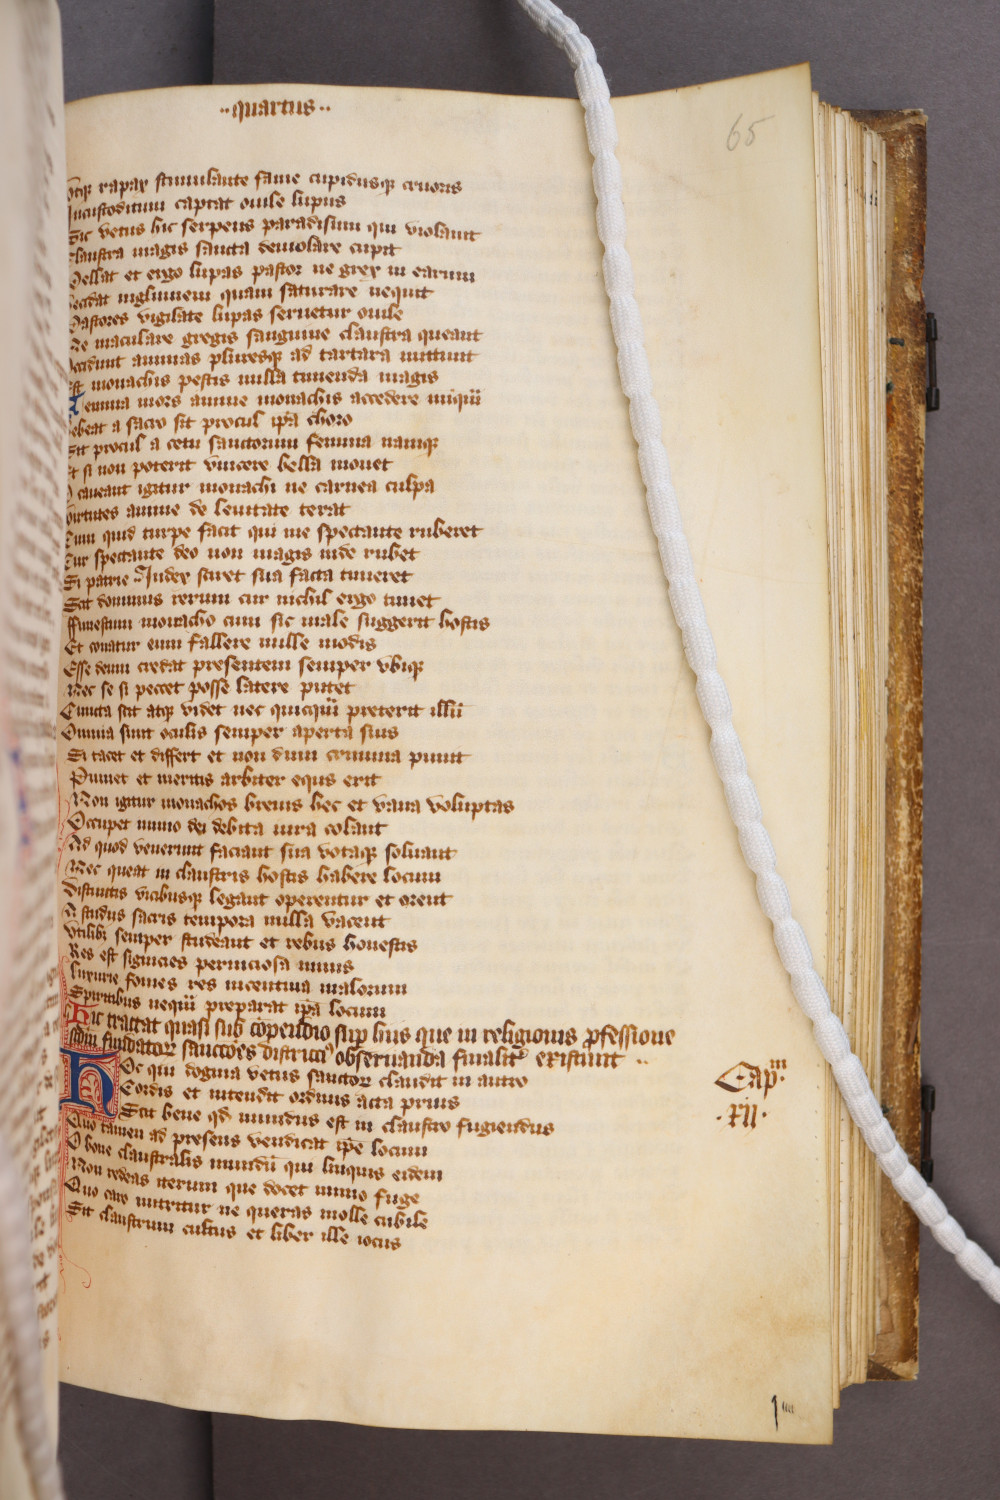 ··quartus··
65
rapax stimulante fame cupidusqȝ cruoris
Incustoditum captat ouile lupus
Sic vetus hic serpens paradisum qui violauit
Claustra magis sancta demolare cupit
Pellat et ergo lupas pastor ne grex in earum
Decidat ingluuiem quam saturare nequit
Pastores vigilate lupas seruetur ouile
Ne maculare gregis sanguine claustra queant
Occidunt animas pluresqȝ ad tartara mittunt
Est monachis pestis nulla timenda magis
Femina mors anime monachis accedere nūqū
Debeat a sacro sit procul ip̄a choro
Sit procul a cetu sanctorum femina namqȝ
Et si non poterit vincere bella mouet
O caueant igitur monachi ne carnea culpa
virtutes anime de leuitate terat
Cum quid turpe facit qui me spectante ruberet
Cur spectante deo non magis inde rubet
Si patrie Iudex sciret sua facta timeret
Scit dominus rerum cur nichil ergo timet
ffunestum monacho cum sic male suggerit hostis
Et conatur eum fallere mille modis
Esse deum credat presentem semper vbiqȝ
Nec se si peccet posse latere putet
Cuncta scit atqȝ videt nec quicqū preterit illū
Omnia sunt oculis semper aperta suis
Si tacet et differt et non dum crimina punit
Puniet et meritis arbiter equs erit
Non igitur monachos breuis hec et vana voluptas
Occupet immo dei debita iura colant
Ad quod venerunt faciant sua votaqȝ soluant
Nec queat in claustris hostis habere locum
Distinctis vicibusqȝ legant operentur et orent
A studiis sacris tempora nulla vacent
vtilibȝ semper studeant et rebus honestis
Res est signicies perniciosa nimis
luxurie fomes res incentiua malorum
Spiritibus nequū preparat ip̄a locum
Hic tractat quasi sub cōpendio sup̄ hiis que in religionis p̄fessione
scdm̄ fundatoꝝ sancc̄oes districc̄ obseruanda finalit̄ existunt ··
Cap·m
·XII·
Hec qui dogma vetus sanctoꝝ claudit in antro
Cordis et intendit ordinis acta prius
Scit bene qd̄ mundus est in claustro fugiendus
Quo tamen ad presens vendicat ip̄e locum
O bone claustralis mundū qui linquis eidem
Non redeas iterum que docet immo fuge
Quo caro nutritur ne queras molle cubile
Sit claustrum cultus et liber ille iocus